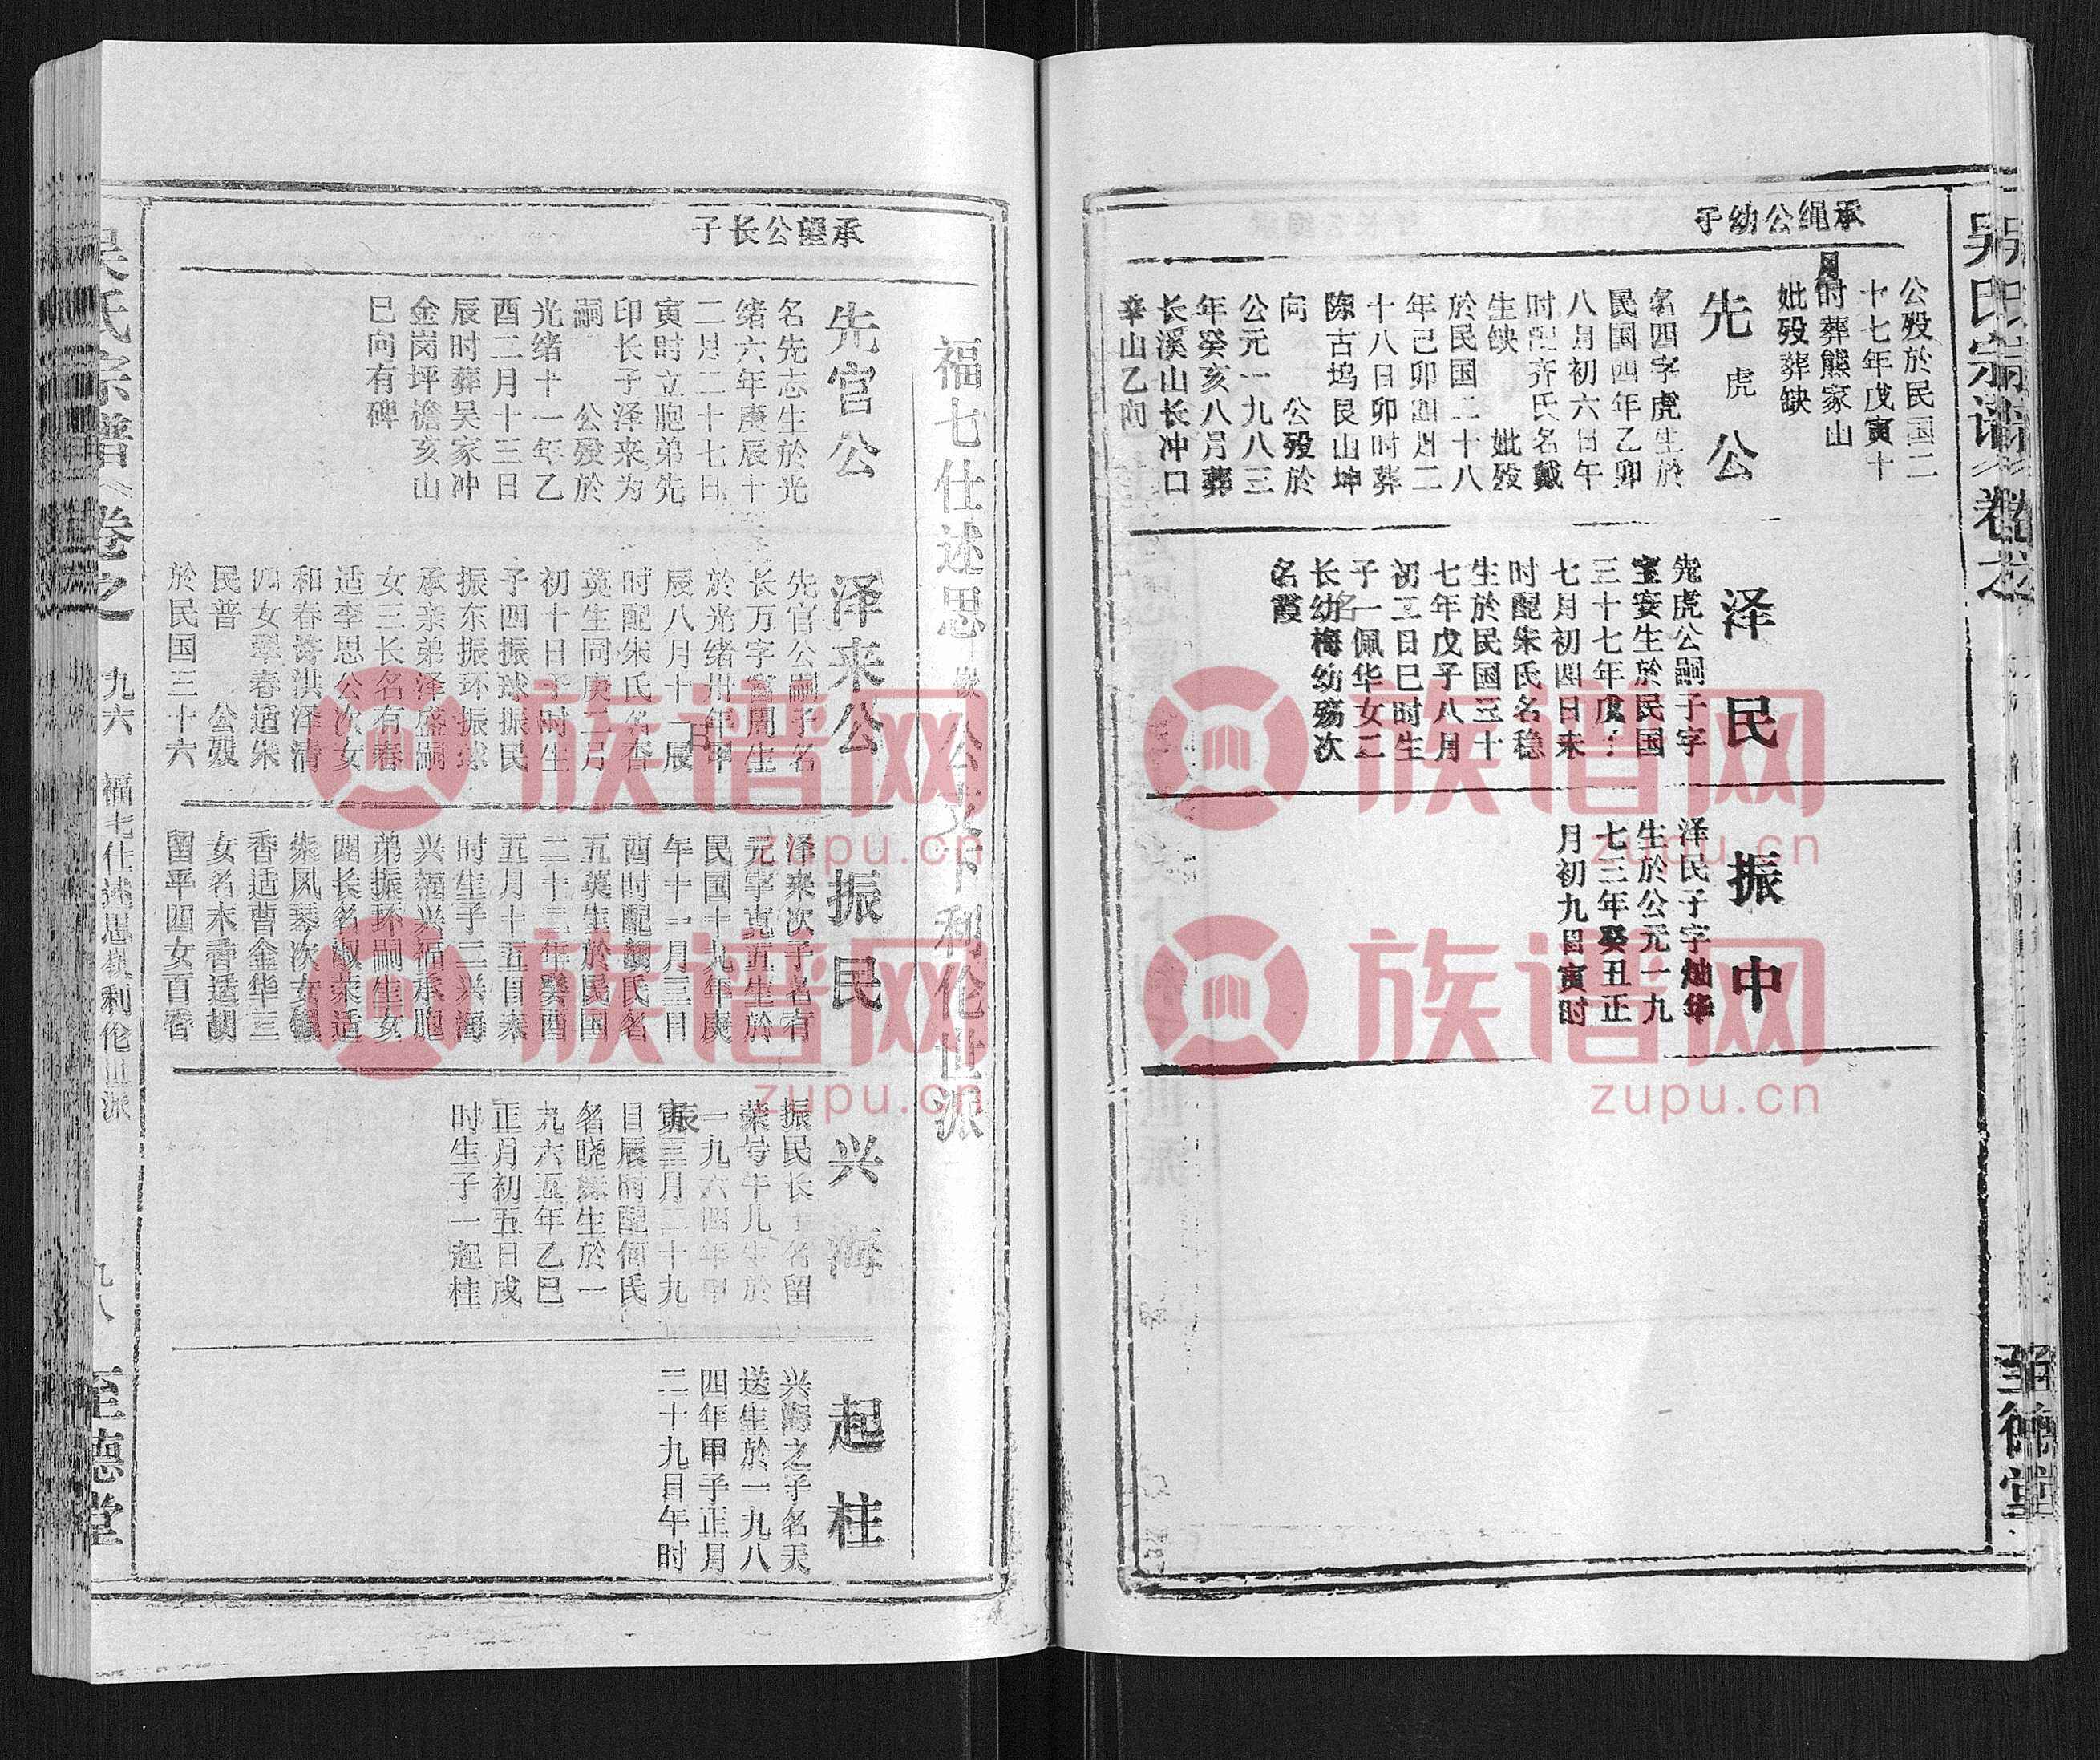 吴氏宗谱
卷之
至德堂
承绳公幼子
公殁於民国二
十七年戊寅十
月
时葬熊家山
妣殁葬缺
先虎公
名四字虎生於
民国四年乙卯
八月初六日午
时配齐氏名戴
生缺 妣殁
於民国二十八
年己卯四月二
十八日卯时葬
陈古坞艮山坤
向 公殁於
公元一九八三
年癸亥八月葬
长溪山长冲口
辛山乙向
泽民
先虎公嗣子字
宝安生於民国
三十七年戊子
七月初四日未
时配朱氏名稳
生於民国三十
七年戊子八月
初二日巳时生
子一佩华女二
名
长幼梅幼殇次
名霞
振中
泽民子字灿华
生於公元一九
七三年癸丑正
月初九日寅时
福七仕述思 公支下利伦世派
承望公长子
先官公
名先志生於光
绪六年庚辰十
二月二十七日
寅时立胞弟先
印长子泽来为
嗣 公殁於
光绪十一年乙
酉二月十三日
辰时葬吴家冲
金岗坪檐亥山
巳向有碑
泽来公
先官公嗣子名
长万字富周生
於光绪卅年甲
辰八月十日辰
时配朱氏名香
英生同庚二月
初十日子时生
子四振球振民
振东振环振球
承亲弟泽盛嗣
女三长名有春
适李思公次女
和春涛洪泽清
四女翠春适朱
民普 公殁
於民国三十六
振民
泽来次子名有
元字克五生於
民国十九年庚
午十一月三日
酉时配胡氏名
五英生於民国
二十二年癸酉
五月十五日秦
时生子二兴海
兴福兴福承胞
弟振环嗣生女
四长名淑荣适
朱凤琴次女银
香适曹金华三
女名木香适胡
留平四女百香
兴海
振民长子名留
荣号牛儿生於
一九六四年甲
辰
寅三月二十九
日辰时配何氏
名晓妹生於一
九六五年乙巳
正月初五日戌
时生子一起柱
起柱
兴海之子名天
送生於一九八
四年甲子正月
二十九日午时
吴氏宗谱
卷之
九六
福七仕述思 利伦世派
九八
至德堂
族谱网
zupu.cn
族谱网
zupu.cn
族谱网
zupu.cn
族谱网
zupu.cn